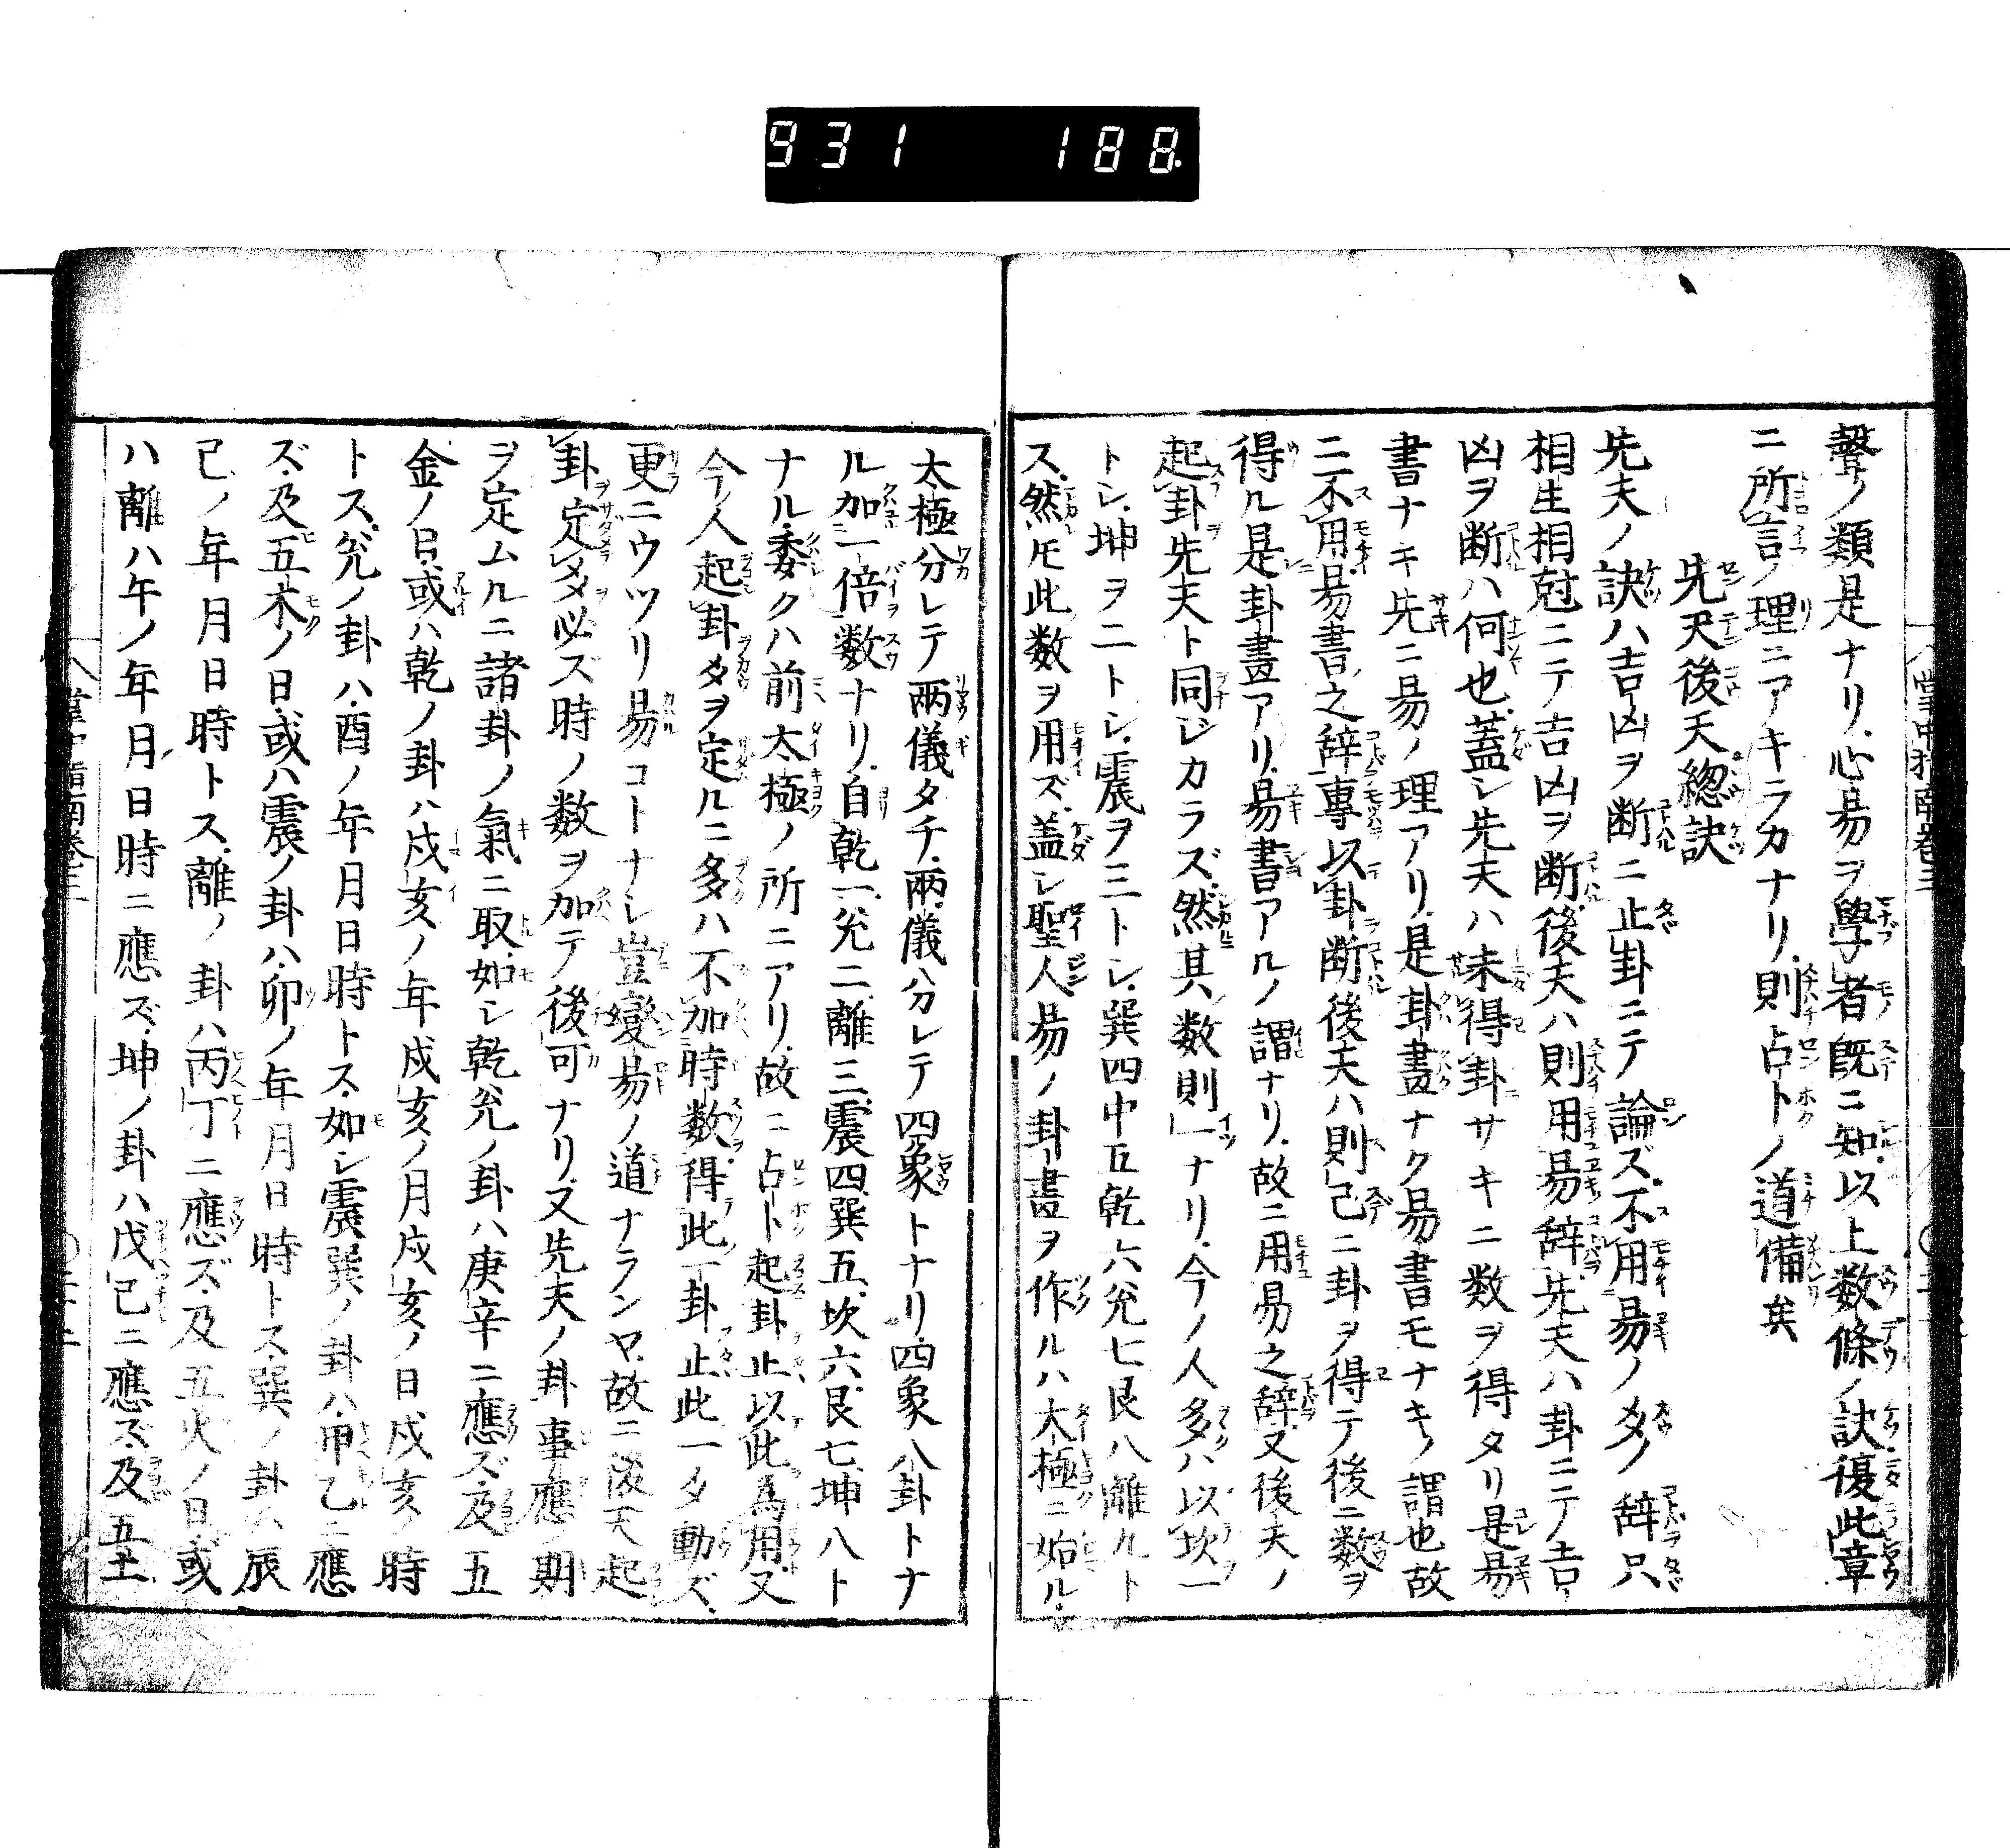 931 188.
聲ノ類是ナリ心易ヲ學者既ニ知以上数條ノ訣復此章
ニ所言ノ理ニアキラカナリ則占卜ノ道備矣
先天後天總訣
先天ノ訣ハ吉凶ヲ断ニ止卦ニテ論ズ不用易ノ爻ノ辞只
相生相尅ニテ吉凶ヲ断後天ハ則用易辞先天ハ卦ニテノ吉
凶ヲ断ハ何也蓋シ先天ハ未得卦サキニ数ヲ得タリ是易
書ナキ先ニ易ノ理アリ是卦畫ナク易書モナキノ謂也故
ニ不用易書之辞専以卦断後天ハ則己ニ卦ヲ得テ後ニ数ヲ
得ル是卦畫アリ易書アルノ謂ナリ故ニ用易之辞又後天ノ
起卦先天ト同ジカラズ然其数則一ナリ今ノ人多ハ以坎一
トシ坤ヲ二トシ震ヲ三トシ巽四中五乾六兊七艮八離九ト
ス然𪜈此数ヲ用ズ盖シ聖人易ノ卦畫ヲ作ルハ太極ニ始ル
太極分レテ兩儀タチ兩儀分レテ四象トナリ四象八卦トナ
ル加一倍数ナリ自乾一兊二離三震四巽五坎六艮七坤八ト
ナル委クハ前太極ノ所ニアリ故ニ占卜起卦止以此為用又
今ノ人起卦爻ヲ定ルニ多ハ不加時数得此一卦止此一爻動ズ
更ニウツリ易コトナシ豈變易ノ道ナランヤ故ニ後天起
卦定爻必ズ時ノ数ヲ加テ後可ナリ又先天ノ卦事應ノ期
ヲ定ムルニ諸卦ノ氣ニ取如シ乾兊ノ卦ハ庚辛ニ應ズ及五
金ノ日或ハ乾ノ卦ハ戌亥ノ年戌亥ノ月戌亥ノ日戌亥ノ時
トス兊ノ卦ハ酉ノ年月日時トス如シ震巽ノ卦ハ甲乙ニ應
ズ及五木ノ日或ハ震ノ卦ハ卯ノ年月日時トス巽ノ卦ハ辰
巳ノ年月日時トス離ノ卦ハ丙丁ニ應ズ及五火ノ日或
ハ離ハ午ノ年月日時ニ應ズ坤ノ卦ハ戊己ニ應ズ及五土